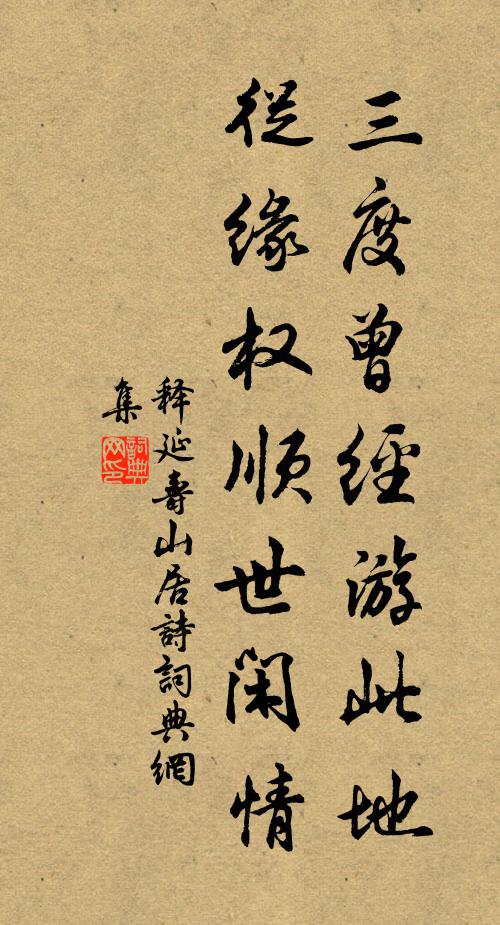 三度曾經游此地
從緣权順世閑情
释延壽山居詩詞典網
集
詞典网印